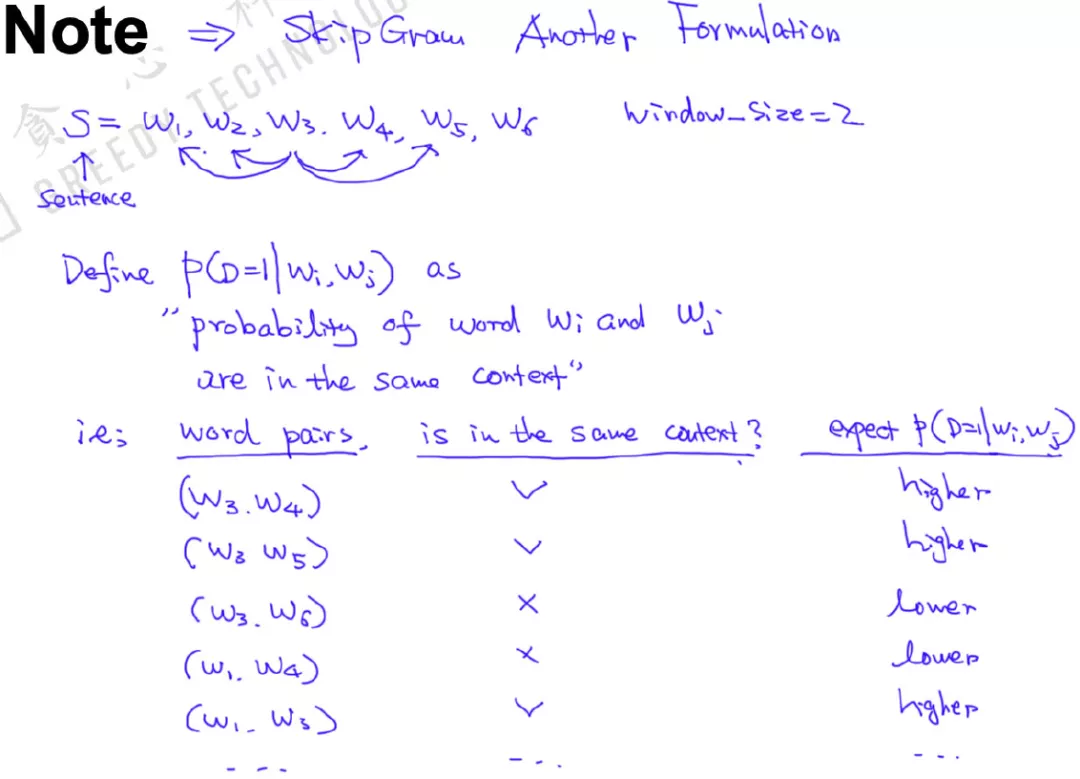 Note ⇒ SkipGram Another Formulation
S = W₁, W₂, W₃. W₄, W₅, W₆ window_size=2
sentence
Define p(D=1|wᵢ,wⱼ) as
"probability of word wᵢ and wⱼ
are in the same context"
ie; word pairs. is in the same context? expect p(D=1|wᵢ,wⱼ)
(W₃.W₄) ✓ higher
(W₃ W₅) ✓ higher
(W₃.W₆) × lower
(W₁.W₄) × lower
(W₁.W₃) ✓ higher
--- --- ---
GREEDY TECHNOLOG